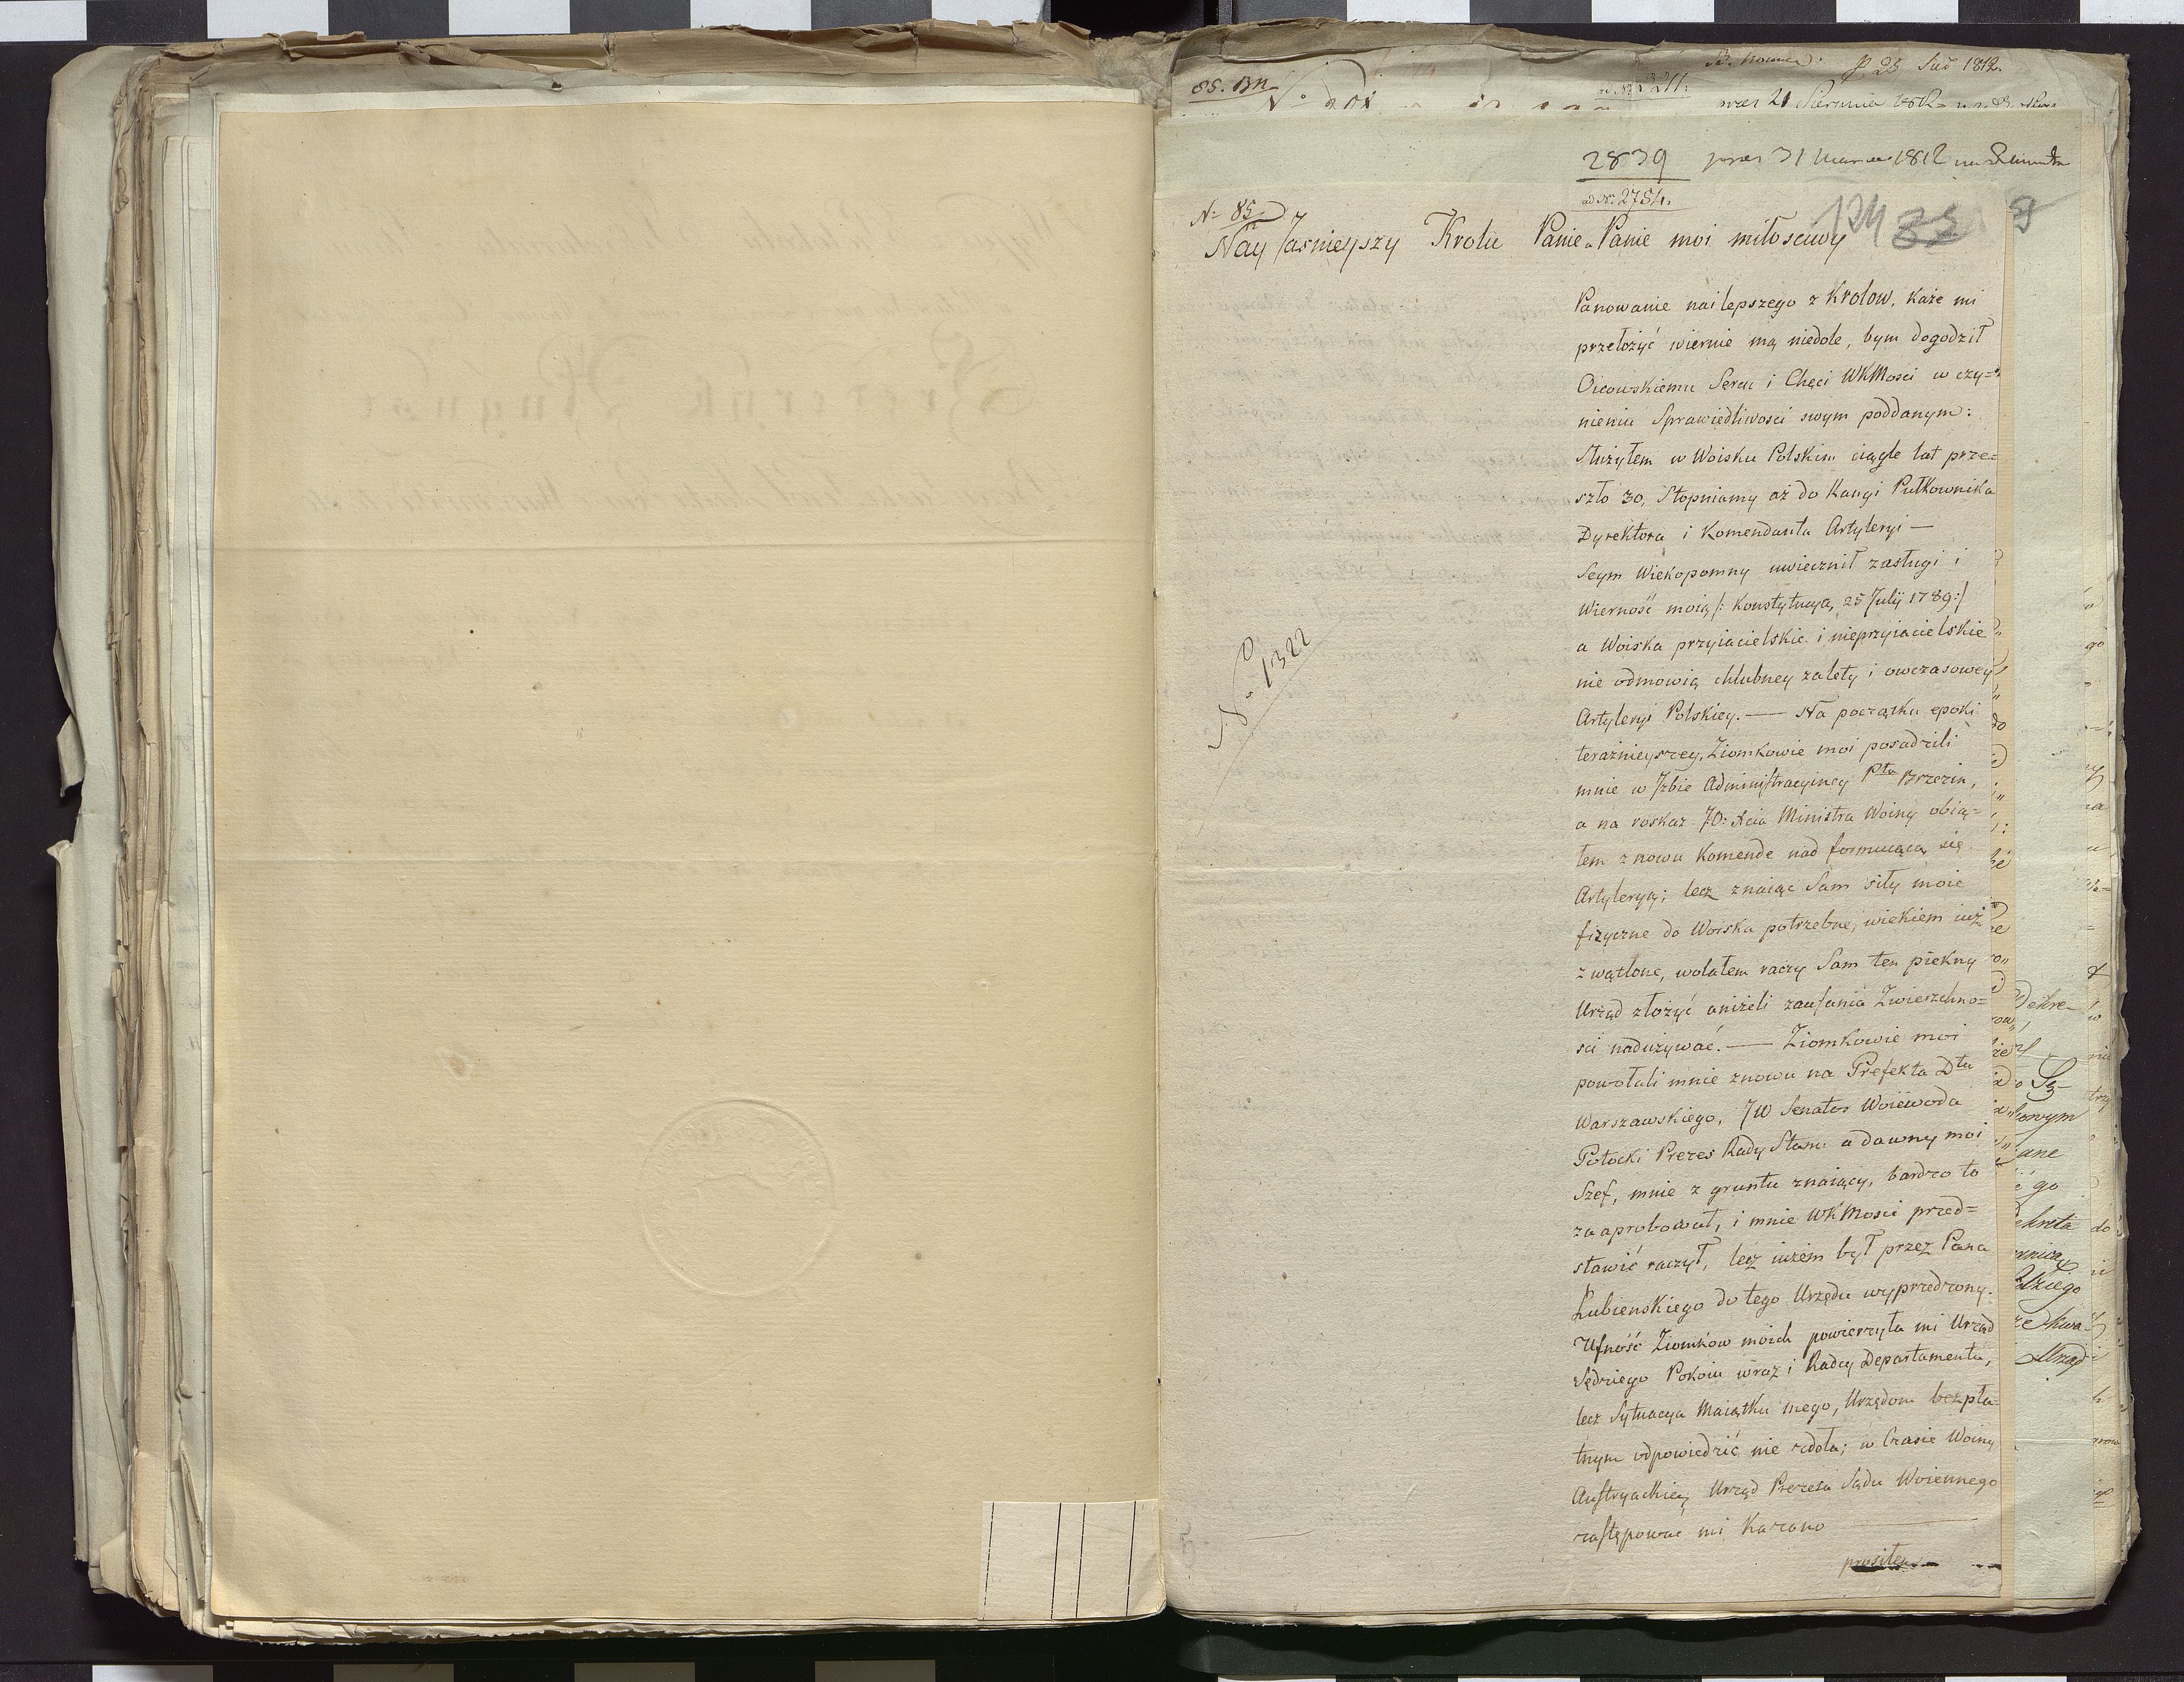 85. Bn
ad N. 3211.
23 1812.
2839 prez 31 Marca 1812
ad No 2754.
N= 85
124 9
Nay Jasnieyszy Krolu Panie a Panie moi miłosciwy
Panowanie nailepszego z Krolow, każe mi
przełożyć wiernie mą niedole, bym dogodził
Oicowskiemu Sercu i Chęci WKMosci w czy=
nieniu Sprawiedliwosci swym poddanym:
Służyłem w Woisku Polskim ciągle lat prze=
szło 30, Stopniamy aż do Rangi Pułkownika
Dyrektora i Komendanta Artyleryi —
Seym Wiekopomny uwiecznił zasługi i
Wierność moią /: Konstytucya, 25 Julij 1789:/
a Woiska przyiacielskie i nieprzyiacielskie
nie odmowią chlubney zalety i owczasowey
Artyleryi Polskiey. — Na początku epoki
teraznieyszey, Ziomkowie moi posadzili
mnie w Jzbie Administracyiney Ptu Brzezin,
a na roskaz JO: Xcia Ministra Woiny obią=
łem znowu Komende nad formuiącą się
Artyleryą; lecz znaiąc Sam siły moie
fizyczne do Woiska potrzebne, wiekiem iuż
zwątlone, wolałem raczy Sam ten piękny
Urząd złożyć aniżeli zaufania Zwierzchno=
sci nadużywać. — Ziomkowie moi
powołali mnie znowu na Prefekta Dtu
Warszawskiego, JW Senator Woiewoda
Potocki Prezes Rady Stanu a dawny moi
Szef, mnie z gruntu znaiący, bardzo to
zaaprobował, i mnie WKMosci przed=
stawić raczył, lecz iużem był przez Pana
Łubienskiego do tego Urzędu wyprzedzony.
Ufność Ziomków moich powierzyła mi Urząd
Sędziego Pokoiu wraz i Radcy Departamentu,
lecz Sytuacya Maiątku mego, Urzędom bezpła=
tnym odpowiedzić nie zdoła; w Czasie Woiny
Austryackiey Urząd Prezesa Sądu Woiennego
zastępować mi kazano
prosiłem
No 1322